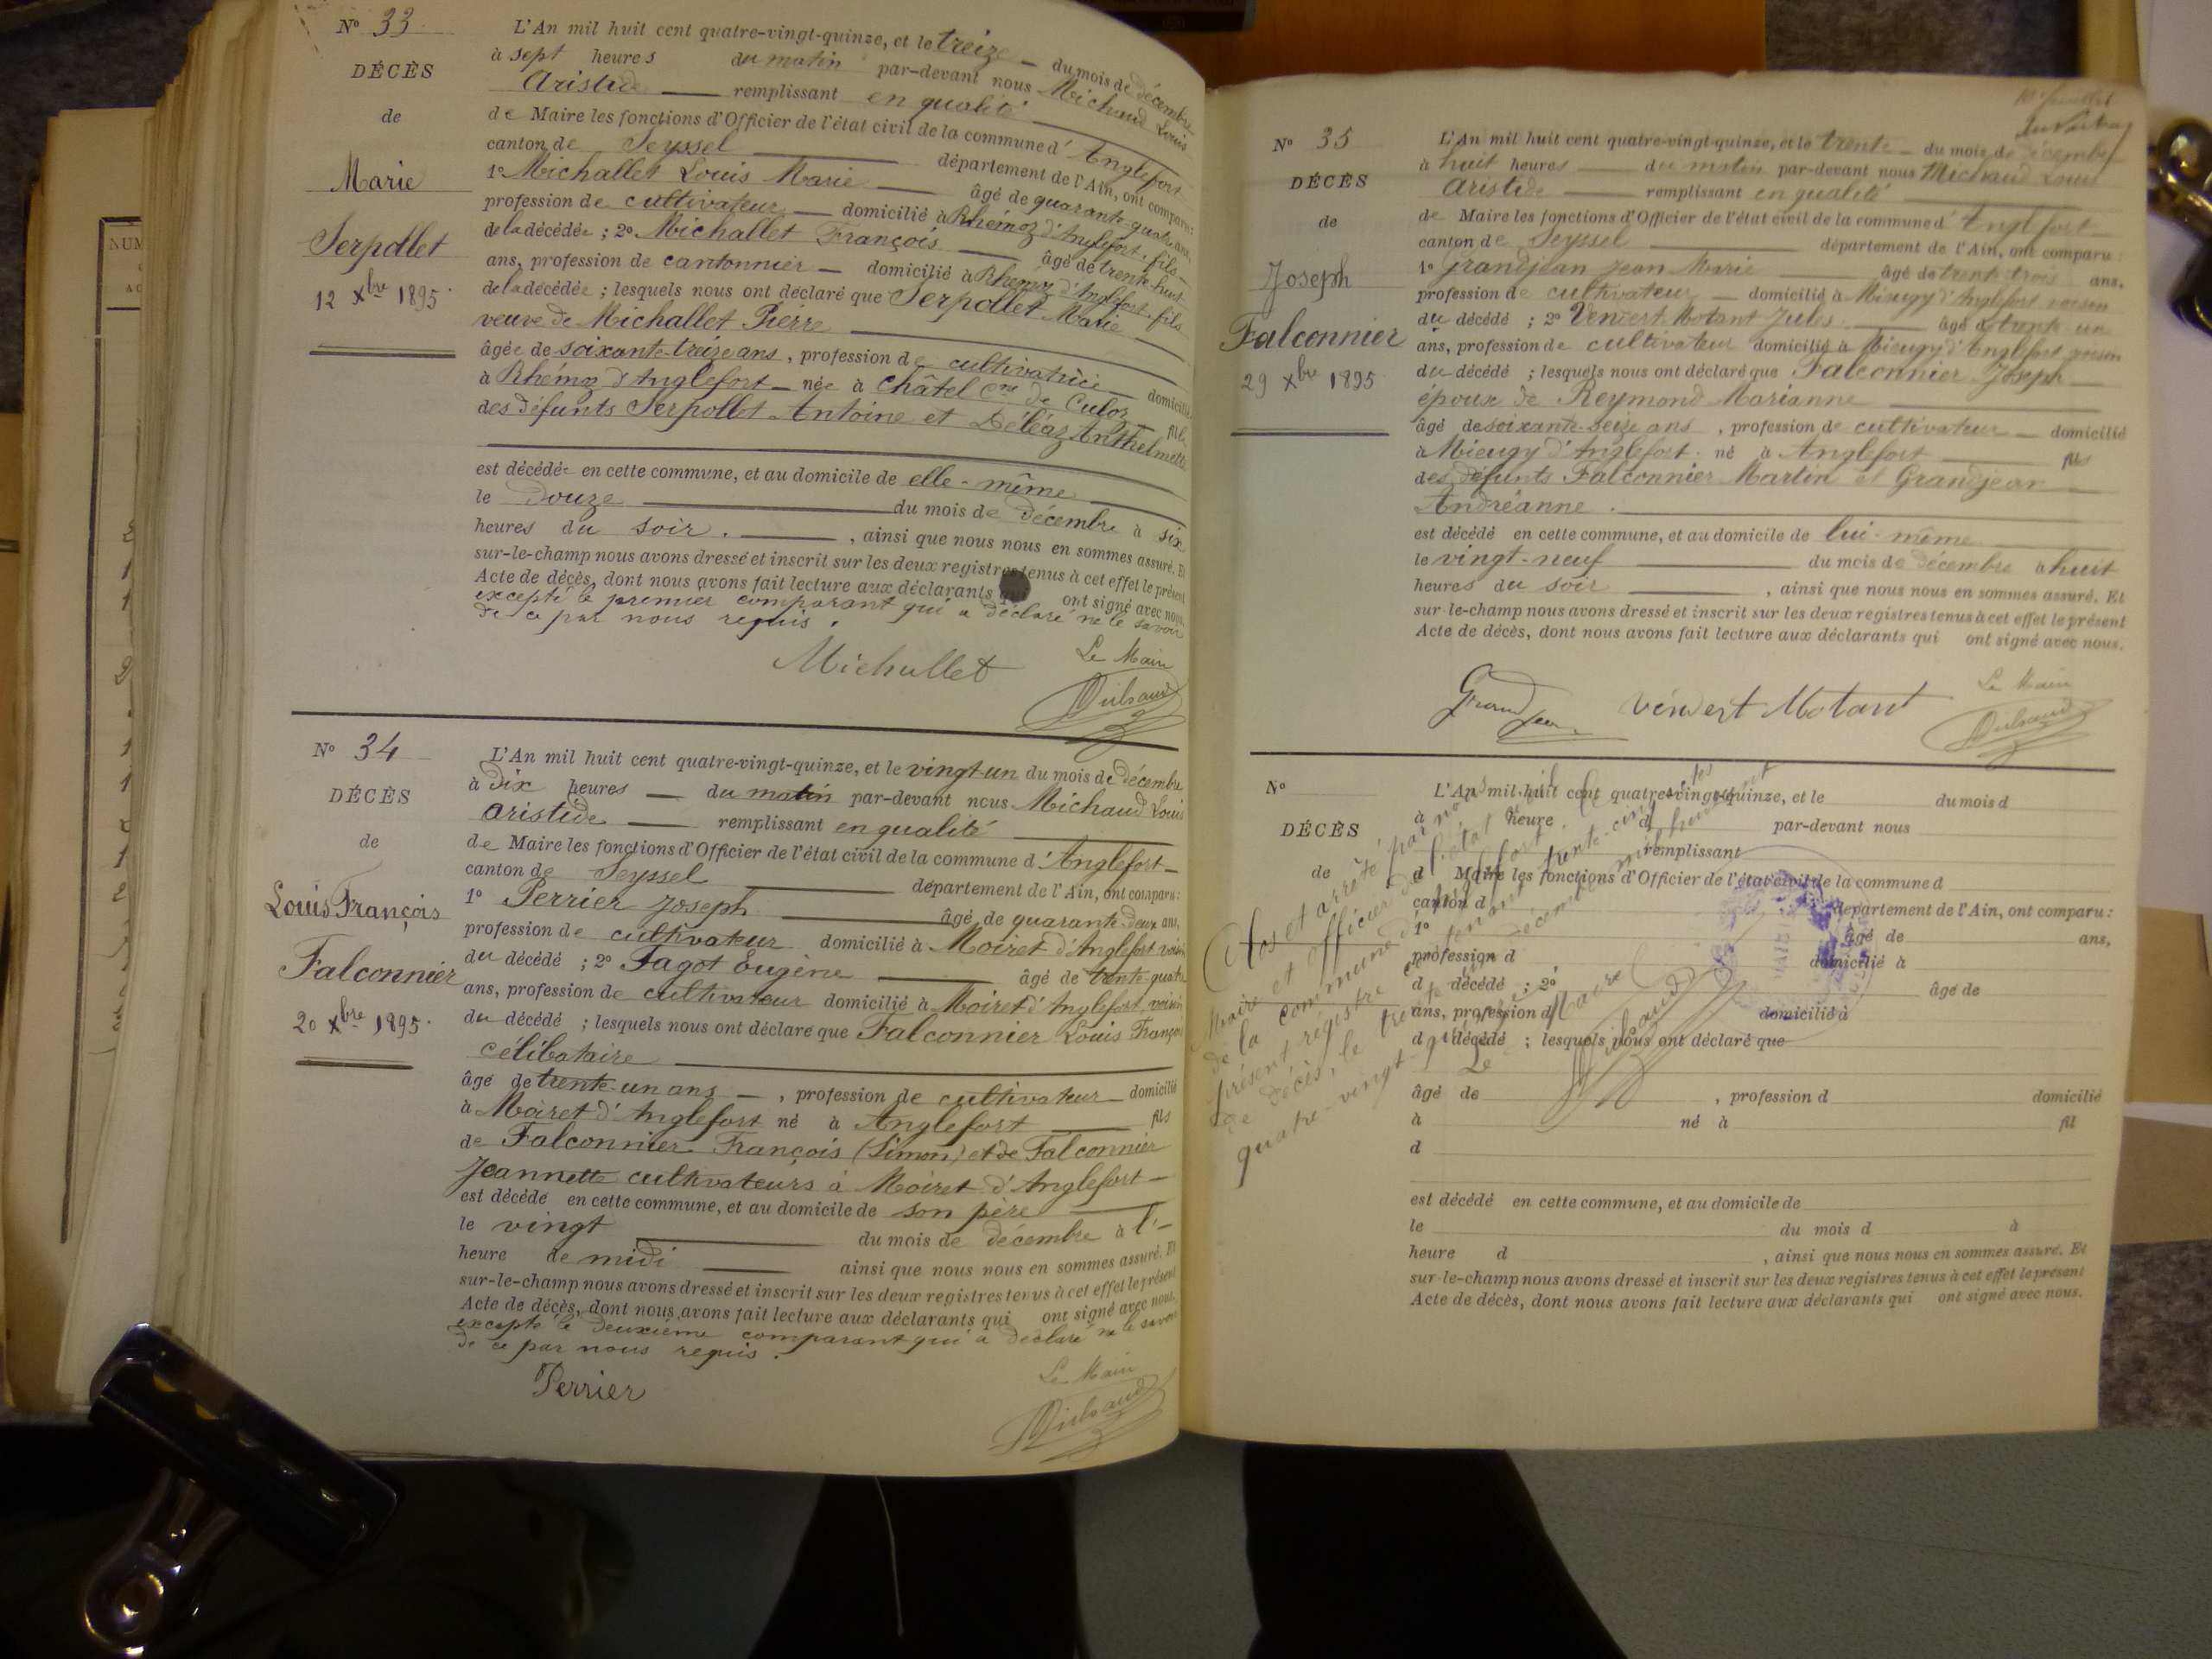 N° 33
DÉCÈS
de
Marie
Serpollet
12 Xbre 1895.
L'An mil huit cent quatre-vingt-quinze, et le treize — du mois de décembre
à sept heures du matin par-devant nous Michaud Louis
Aristide — remplissant en qualité
de Maire les fonctions d'Officier de l'état civil de la commune d'Anglefort
canton de Seyssel — département de l'Ain, ont comparu :
1° Michallet Louis Marie — âgé de quarante-quatre ans,
profession de cultivateur — domicilié à Rhémoz d'Anglefort, fils
de la décédée ; 2° Michallet François — âgé de trente-huit
ans, profession de cantonnier — domicilié à Rhémoz d'Anglefort, fils
de la décédée ; lesquels nous ont déclaré que Serpollet Marie
veuve de Michallet Pierre
âgée de soixante-treize ans, profession de cultivatrice domiciliée
à Rhémoz d'Anglefort — née à Châtel Cne de Culoz fille
des défunts Serpollet Antoine et Déléaz Anthelmette
est décédée en cette commune, et au domicile de elle-même
le douze — du mois de décembre à six
heures du soir. — , ainsi que nous nous en sommes assuré. Et
sur-le-champ nous avons dressé et inscrit sur les deux registres tenus à cet effet le présent
Acte de décès, dont nous avons fait lecture aux déclarants ont signé avec nous.
excepté le premier comparant qui a déclaré ne le savoir
de ce par nous requis.
Michallet
Le Maire
N° 34
DÉCÈS
de
Louis François
Falconnier
20 Xbre 1895.
L'An mil huit cent quatre-vingt-quinze, et le vingt-un du mois de décembre
à dix heures — du matin par-devant nous Michaud Louis
Aristide — remplissant en qualité
de Maire les fonctions d'Officier de l'état civil de la commune d'Anglefort —
canton de Seyssel — département de l'Ain, ont comparu :
1° Perrier Joseph — âgé de quarante-deux ans,
profession de cultivateur domicilié à Moiret d'Anglefort voisin
du décédé ; 2° Fagot Eugène — âgé de trente-quatre
ans, profession de cultivateur domicilié à Moiret d'Anglefort, voisin
du décédé ; lesquels nous ont déclaré que Falconnier Louis François
célibataire
âgé de trente-un ans — , profession de cultivateur — domicilié
à Moiret d'Anglefort né à Anglefort — fils
de Falconnier François (Simon) et de Falconnier
Jeannette cultivateurs à Moiret d'Anglefort —
est décédé en cette commune, et au domicile de son père
le vingt — du mois de décembre à l'—
heure de midi — ainsi que nous nous en sommes assuré. Et
sur-le-champ nous avons dressé et inscrit sur les deux registres tenus à cet effet le présent
Acte de décès, dont nous avons fait lecture aux déclarants qui ont signé avec nous.
excepté le deuxième comparant qui a déclaré ne le savoir
de ce par nous requis.
Perrier
Le Maire
N° 35
DÉCÈS
de
Joseph
Falconnier
29 Xbre 1895
L'An mil huit cent quatre-vingt-quinze, et le trente — du mois de décembre
à huit heures — du matin par-devant nous Michaud Louis
Aristide — remplissant en qualité
de Maire les fonctions d'Officier de l'état civil de la commune d'Anglefort
canton de Seyssel — département de l'Ain, ont comparu :
1° Grandjean Jean Marie — âgé de trente-trois ans,
profession de cultivateur — domicilié à Mieugy d'Anglefort voisin
du décédé ; 2° Venvert Motant Jules — âgé de trente-un
ans, profession de cultivateur domicilié à Mieugy d'Anglefort voisin
du décédé ; lesquels nous ont déclaré que Falconnier Joseph
époux de Reymond Marianne
âgé de soixante-seize ans , profession de cultivateur — domicilié
à Mieugy d'Anglefort né à Anglefort — fils
des défunts Falconnier Martin et Grandjean
Andréanne.
est décédé en cette commune, et au domicile de lui-même
le vingt-neuf — du mois de décembre à huit
heures du soir — , ainsi que nous nous en sommes assuré. Et
sur-le-champ nous avons dressé et inscrit sur les deux registres tenus à cet effet le présent
Acte de décès, dont nous avons fait lecture aux déclarants qui ont signé avec nous.
Grandjean Venvert Motant
Le Maire
N°
DÉCÈS
de
L'An mil huit cent quatre-vingt-quinze, et le du mois d
à heure d par-devant nous
remplissant
d Maire les fonctions d'Officier de l'état civil de la commune d
canton d département de l'Ain, ont comparu :
1° âgé de ans,
profession d domicilié à
d décédé ; 2° âge de
ans, profession d domicilié à
d décédé ; lesquels nous ont déclaré que
âgé de , profession d domicilié
à né à fil
d
est décédé en cette commune, et au domicile de
le du mois d à
heure d , ainsi que nous nous en sommes assuré. Et
sur-le-champ nous avons dressé et inscrit sur les deux registres tenus à cet effet le présent
Acte de décès, dont nous avons fait lecture aux déclarants qui ont signé avec nous.
Clos et arrêté par nous
Maire et officier de l'état civil
de la commune d'Anglefort le
présent registre contenant trente-cinq actes
de décès, le trente un décembre mil huit cent
quatre-vingt-quinze
Le Maire